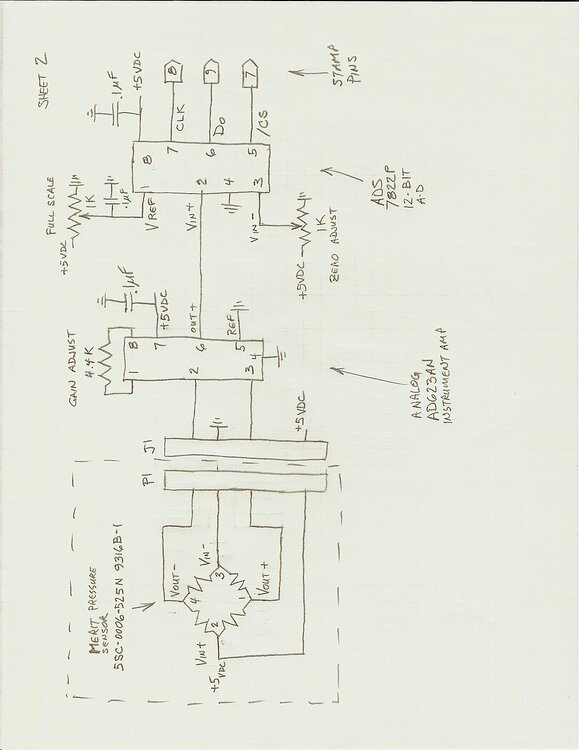 SHEET 2
MERIT PRESSURE
SENSOR
SSC-0006-525N 9316B-1
VIN+
+5VDC
VOUT-
VIN-
VOUT+
1
2
3
4
P1
J1
+5VDC
GAIN ADJUST
4.4K
1
8
2
7
3
6
4
5
.1µF
+5VDC
OUT+
REF
ANALOG
AD623AN
INSTRUMENT AMP
FULL SCALE
+5VDC
1K
.1µF
VREF
VIN+
VIN-
+5VDC
1K
ZERO ADJUST
1
8
2
7
4
6
3
5
.1µF
+5VDC
CLK
8
DO
9
/CS
7
ADS
7822P
12-BIT
A-D
STAMP
PINS